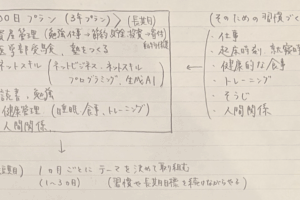 00日プラン (3年プラン) 〉 (長期)
資産管理 (勉強仕事→節約 投資→寄付)
医学部受験、熱をつくる
ネットスキル (ネットビジネス・ネットスキル
プログラミング、生成AI)
読書、勉強
健康管理 (睡眠、食事、トレーニング)
人間関係
(そのための習慣づく
・仕事
・起床時刻、就寝時
・健康的な食事
・トレーニング
・そうじ
・人間関係
↓
1ヶ月ごとにテーマを決めて取り組む
(1〜3ヶ月) (習慣や長期目標を続けながらやる)